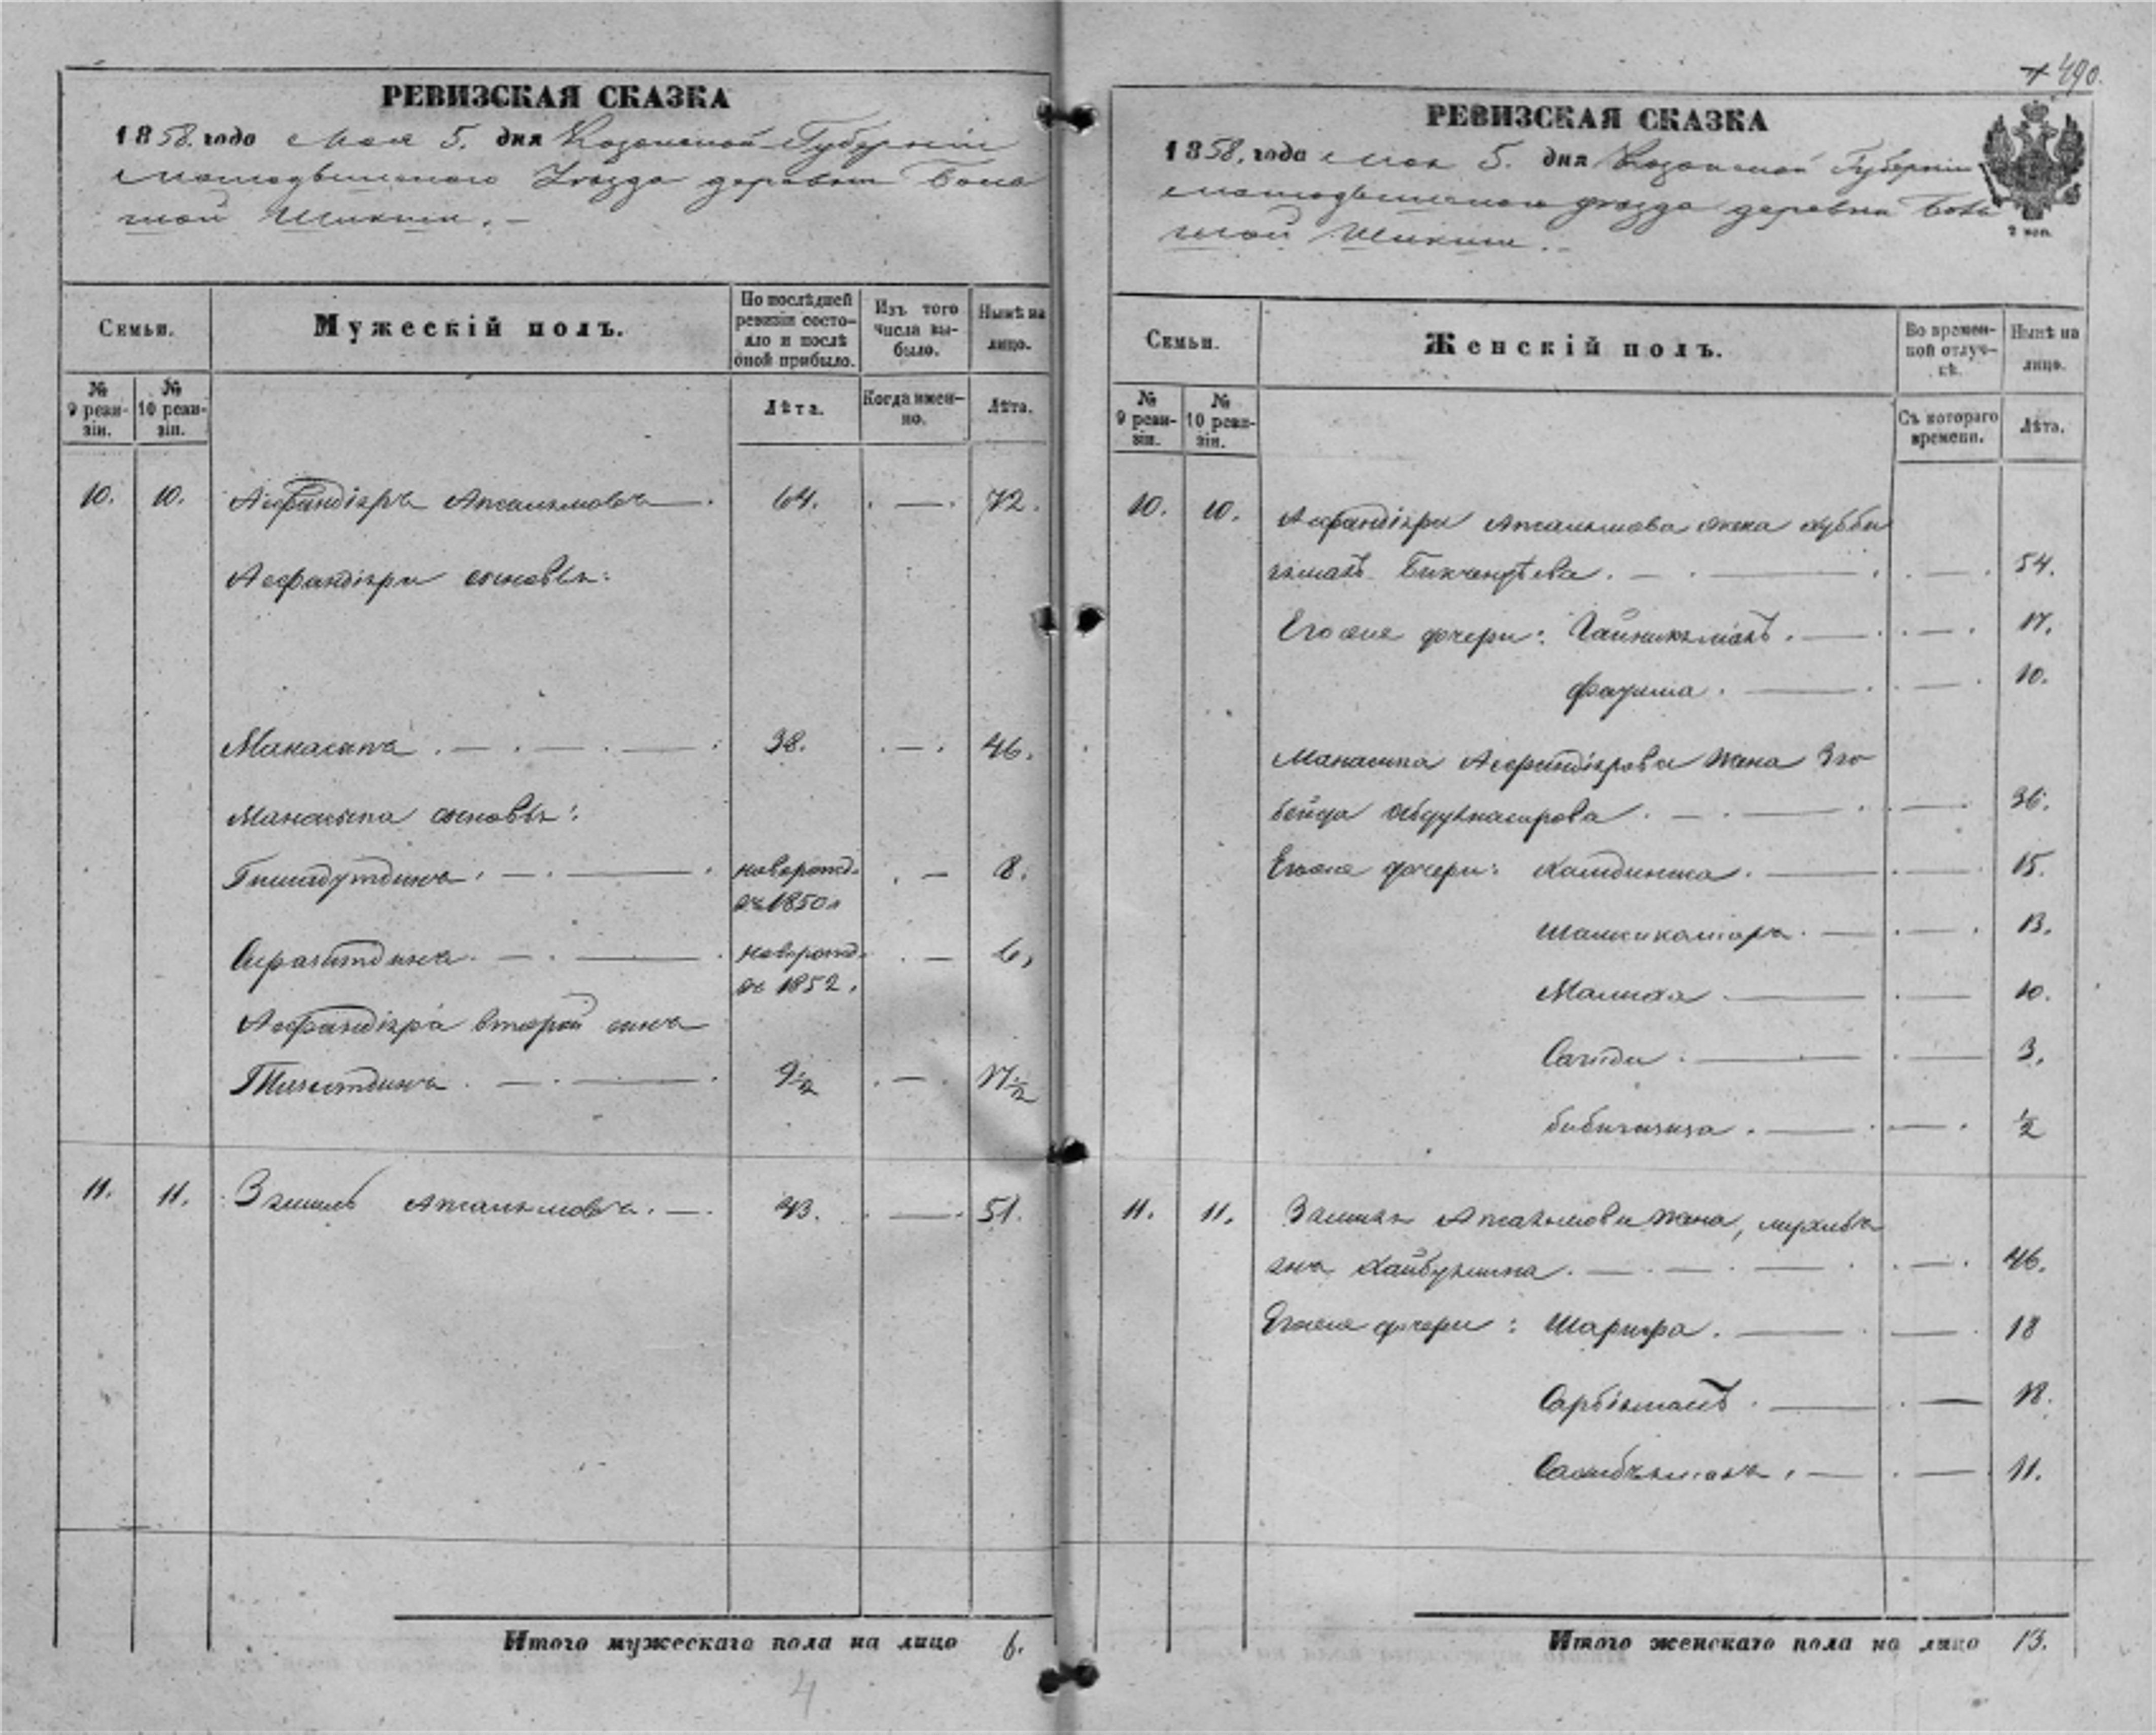 490.
РЕВИЗСКАЯ СКАЗКА
1858. года Мая 5. дня Казанской Губерніи
Мамадышскаго Уѣзда деревни Боль
шой Шикши.
Семьи.
Мужескій полъ.
По послѣдней ревизіи состояло и послѣ оной прибыло.
Изъ того числа выбыло.
Нынѣ на лицо.
№ 9 ревизіи.
№ 10 ревизіи.
Лѣта.
Когда именно.
Лѣта.
10. 10. Асфандіяръ Апсалямовъ 64. 72.
Асфандіяра сыновья:
Манасыпъ 38. 46.
Манасыпа сыновья:
Гимадутдинъ новорожд. 8.
въ 1850
Сиразитдинъ новорожд. 6.
въ 1852.
Асфандіяра второй сынъ
Тазитдинъ 9½ 17½
11. 11. Залялъ Апсалямовъ. 43. 51.
Итого мужескаго пола на лицо 6.
4
РЕВИЗСКАЯ СКАЗКА
1858. года Мая 5. дня Казанской Губерніи
Мамадышскаго уѣзда деревни Боль
шой Шикши.
2 коп.
Семьи.
Женскій полъ.
Во временной отлучкѣ.
Нынѣ на лицо.
№ 9 ревизіи.
№ 10 ревизіи.
Съ котораго времени.
Лѣта.
10. 10. Асфандіяра Апсалямова жена Хубби
зямалъ Бикчентѣева. 54.
Его же дочери: Гайникямалъ. 17.
Фатима. 10.
Манасыпа Асфандіярова жена Зю
бейда Абдулнасырова. 36.
Его же дочери: Хамдиниса. 15.
Шамсикамаръ. 13.
Малиха 10.
Сагиди 3.
Бибигаиза. ½
11. 11. Апсалямова жена,
46.
Его же дочери: Шарифа. 18
Сарбіямалъ. 18.
11.
Итого женскаго пола на лицо 13.